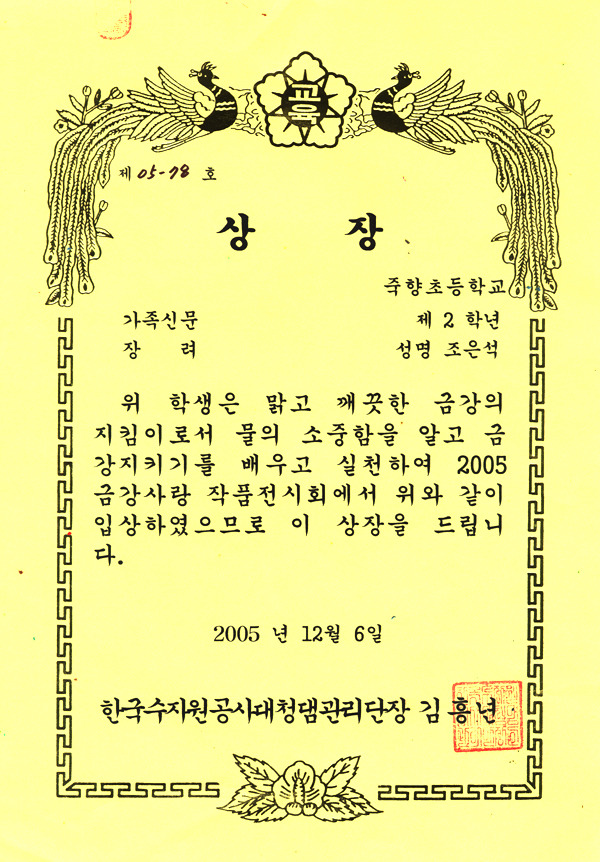 교육
제 05-78 호
상 장
죽향초등학교
가족신문 제 2 학년
장 려 성명 조은석
위 학생은 맑고 깨끗한 금강의
지킴이로서 물의 소중함을 알고 금
강지키기를 배우고 실천하여 2005
금강사랑 작품전시회에서 위와 같이
입상하였으므로 이 상장을 드립니
다.
2005 년 12월 6일
한국수자원공사대청댐관리단장 김 흥 년